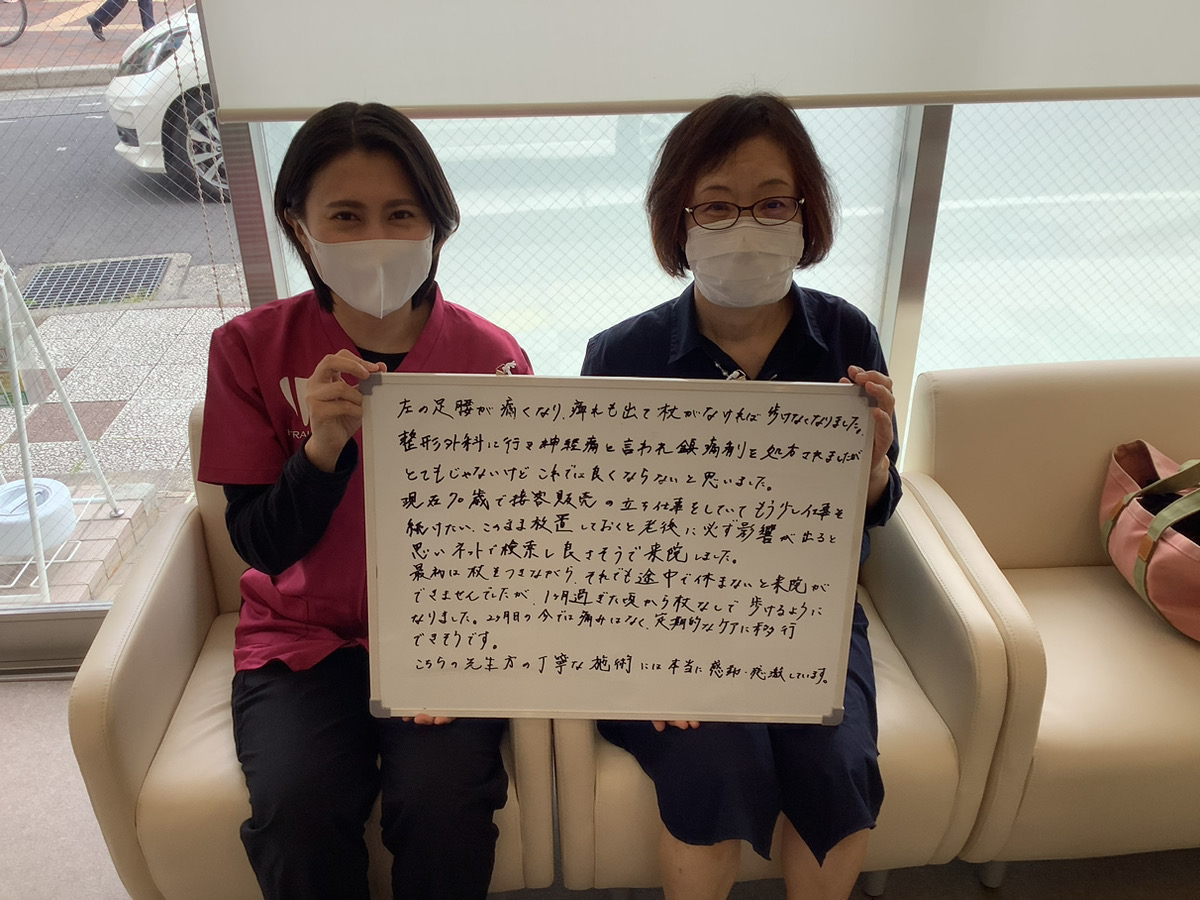 左の足腰が痛くなり、痺れも出て杖がなければ歩けなくなりました。
整形外科に行き神経痛と言われ鎮痛剤を処方されましたが
とてもじゃないけどこれでは良くならないと思いました。
現在70歳で接客販売の立ち仕事をしていてもう少し仕事を
続けたい、このまま放置しておくと老後に必ず影響が出ると
思いネットで検索し良さそうで来院しました。
最初は杖をつきながら、それでも途中で休まないと来院が
できませんでしたが、1ヶ月過ぎた頃から杖なしで歩けるように
なりました。2ヶ月目の今では痛みはなく、定期的なケアに移行
できそうです。
こちらの先生方の丁寧な施術には本当に感謝・感激しています。